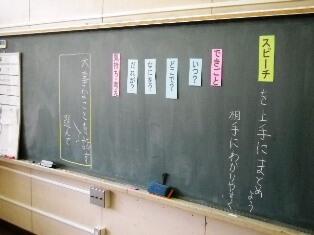 スピーチ
を上手にまとめよう
相手にわかりやすく
できごと
いつ?
どこで?
なにを?
だれが?
気持ち・考え
大事なことを落とさず